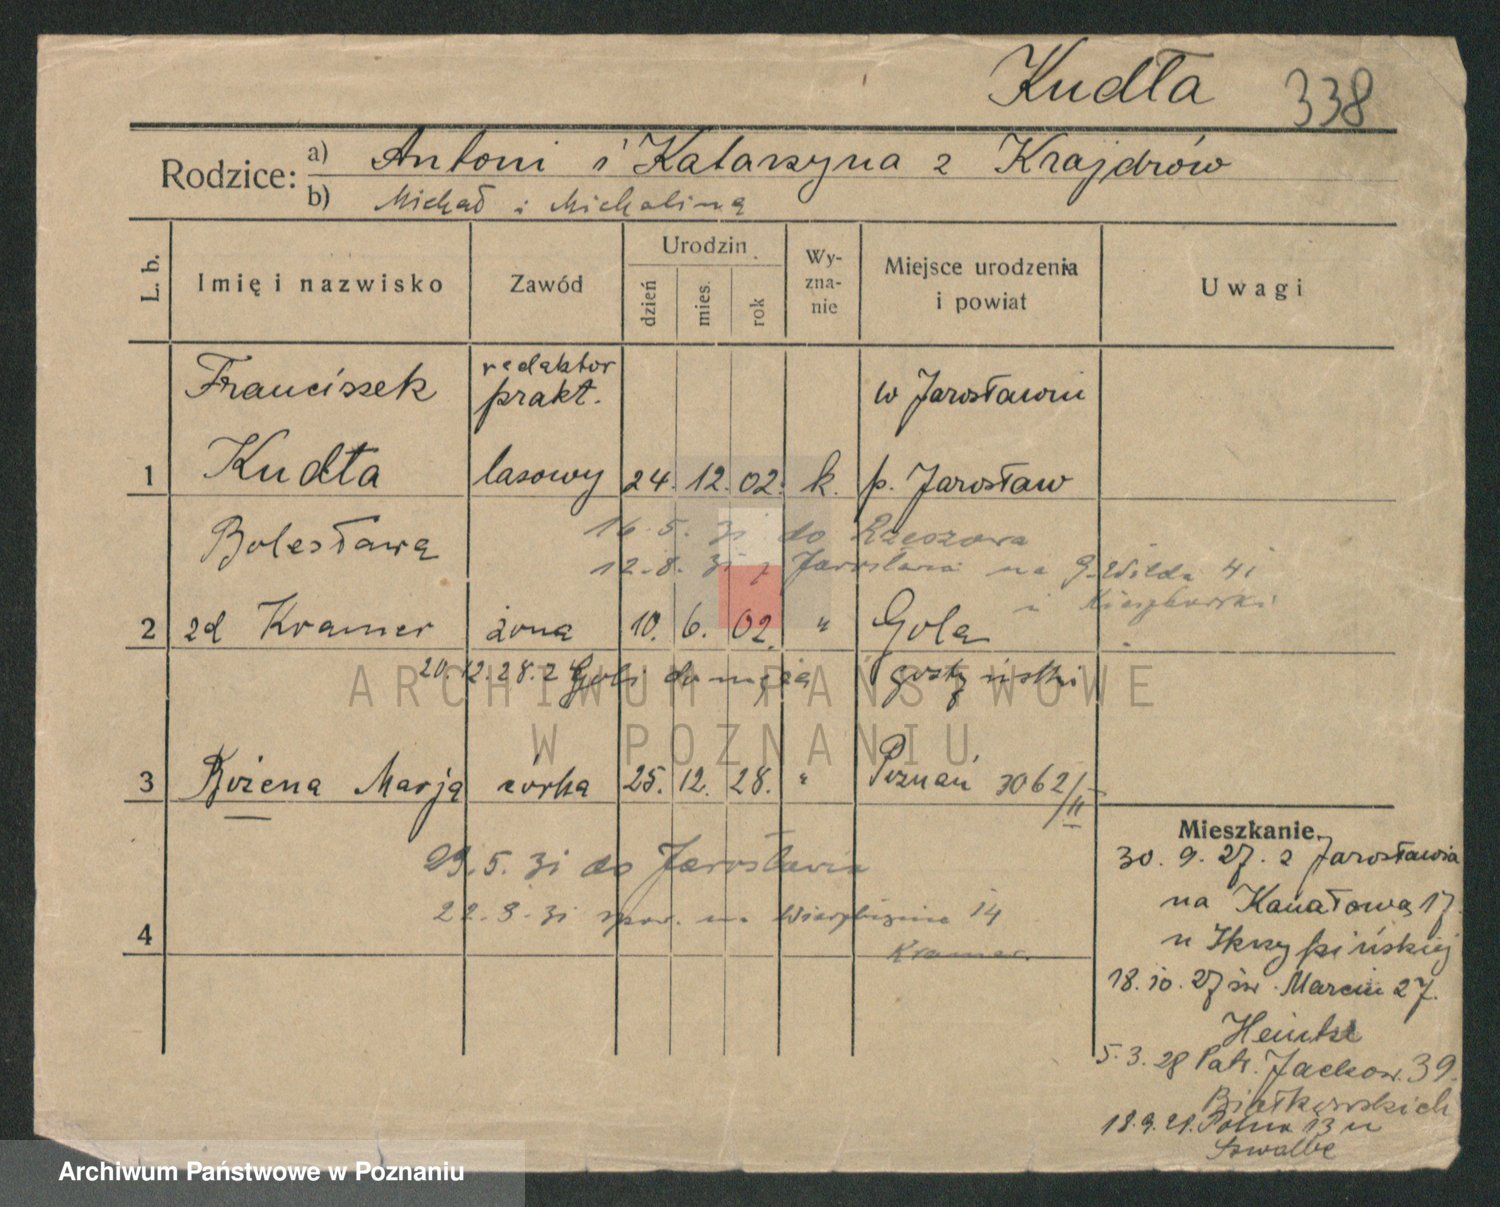 Kudła 338
Rodzice: a) Antoni i Katarzyna z Krajdrów
b) Michał i Michalina
L. b. Imię i nazwisko Zawód Urodzin dzień mies. rok Wyznanie Miejsce urodzenia i powiat Uwagi
Franciszek redaktor prakt. w Jarosławiu
1 Kudła lasowy 24. 12. 02. k. p. Jarosław
Bolesława 16. 5. 31 do Rzeszowa
12. 8. 31 z Jarosławia na G. Wilda 41
2 zd Kramer żona 10. 6. 02. " Gola
20. 12. 28. z Goli do męża gostyński
3 Bożena Marja córka 25. 12. 28. " Poznań 3062/II
Mieszkanie.
29. 5. 31 do Jarosławia
30. 9. 27. z Jarosławia
22. 9. 31 spow. na 14
na Kanałową 17.
4 Kramer.
u Skrzypińskiej
18. 10. 27 św. Marcin 27.
5. 3. 28 Patr. Jackow. 39.
Białkowskich
Polna 13 u
Szwalbe
ARCHIWUM PAŃSTWOWE
W POZNANIU
Archiwum Państwowe w Poznaniu